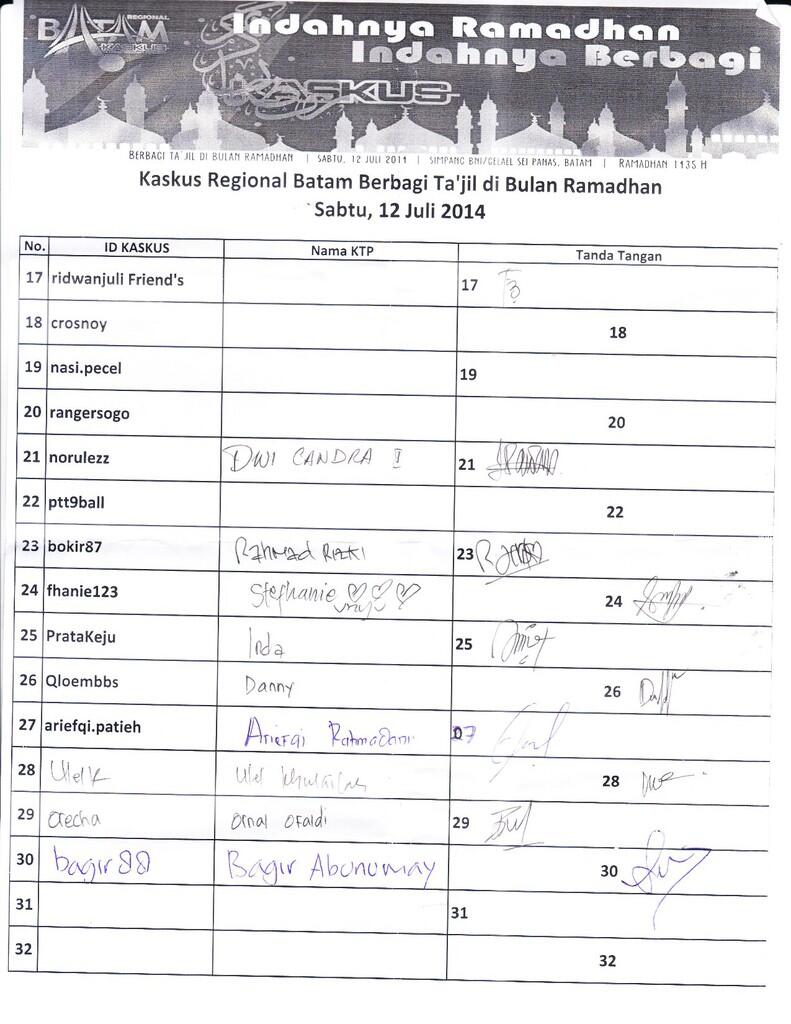 REGIONAL
BATAM
KASKUS
Indahnya Ramadhan
Indahnya Berbagi
KASKUS
BERBAGI TA'JIL DI BULAN RAMADHAN | SABTU, 12 JULI 2011 | SIMPANG BNI/GELAEL SEI PANAS, BATAM | RAMADHAN 1135 H
Kaskus Regional Batam Berbagi Ta'jil di Bulan Ramadhan
Sabtu, 12 Juli 2014
No. ID KASKUS Nama KTP Tanda Tangan
17 ridwanjuli Friend's 17
18 crosnoy 18
19 nasi.pecel 19
20 rangersogo 20
21 norulezz DWI CANDRA I 21
22 ptt9ball 22
23 bokir87 Rahmad RIZKI 23
24 fhanie123 Stephanie 24
25 PrataKeju Inda 25
26 Qloembbs Danny 26
27 ariefqi.patieh Ariefqi Rahmadani 27
28 Ulelk Ulel 28
29 orecha ornal ofaldi 29
30 bagir88 Bagir Abonumay 30
31 31
32 32